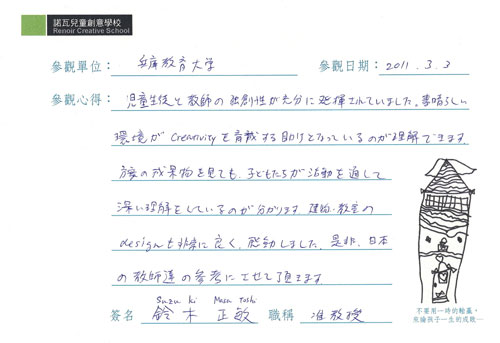 諾瓦兒童創意學校
Renoir Creative School
參觀單位： 兵庫教育大学 參觀日期： 2011.3.3
參觀心得： 児童生徒と教師の独創性が充分に発揮されていました。素晴らしい
環境がCreativityを育成する助けとなっているのが理解できます。
の成果物を見ても、子どもたちが活動を通して
深い理解をしているのが分かります。建物、教室の
designも非常に良く、感動しました。是非、日本
の教師達の参考にさせて頂きます
Suzu ki Masa Toshi
簽名 鈴木 正敏 職稱 准教授
不要用一時的輸贏，
來論孩子一生的成敗…